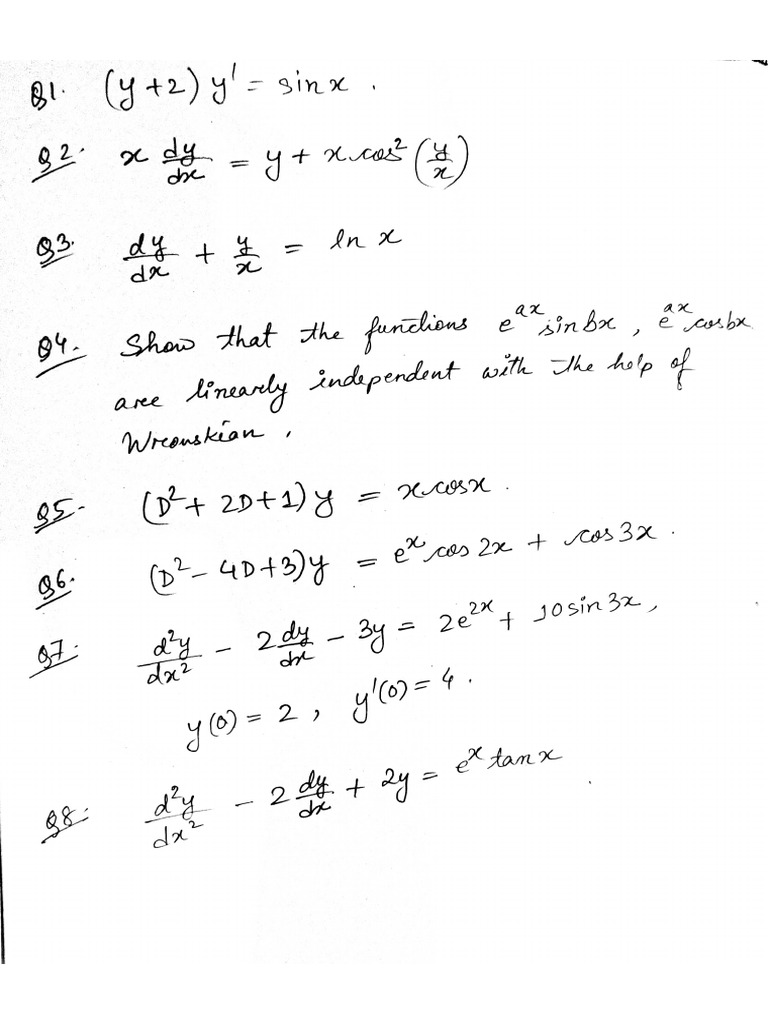 Q1. (y+2) y' = sin x .
Q2. x dy/dx = y + x cos² (y/x)
Q3. dy/dx + y/x = ln x
Q4. Show that the functions e^{ax} sin bx , e^{ax} cos bx
are linearly independent with the help of
Wronskian .
Q5. (D² + 2D + 1) y = x cos x .
Q6. (D² - 4D + 3) y = e^x cos 2x + cos 3x .
Q7. d²y/dx² - 2 dy/dx - 3y = 2e^{2x} + 10 sin 3x ,
y(0) = 2 , y'(0) = 4 .
Q8. d²y/dx² - 2 dy/dx + 2y = e^x tan x .